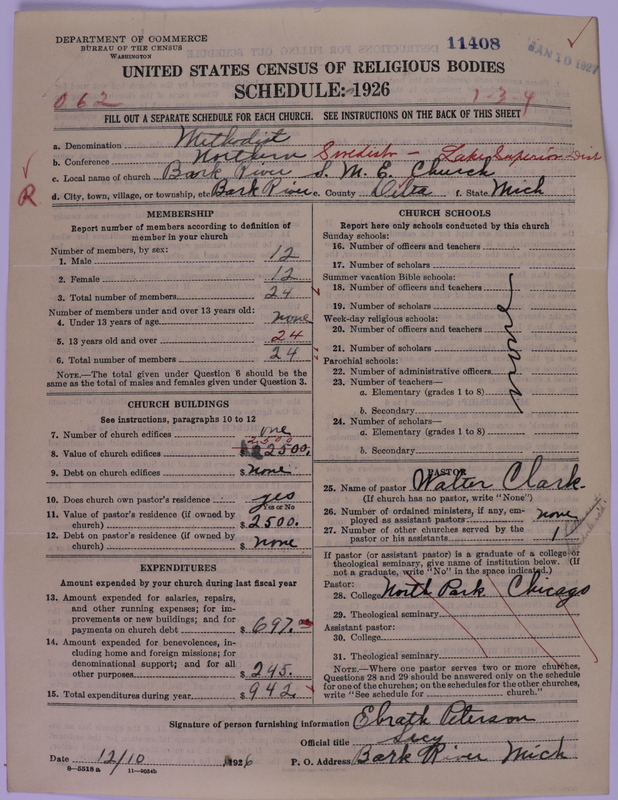 DEPARTMENT OF COMMERCE
BUREAU OF THE CENSUS
WASHINGTON
11408
JAN 10 1927
UNITED STATES CENSUS OF RELIGIOUS BODIES
SCHEDULE: 1926
062
1-3-4
FILL OUT A SEPARATE SCHEDULE FOR EACH CHURCH. SEE INSTRUCTIONS ON THE BACK OF THIS SHEET
a. Denomination Methodist
b. Conference Northern Swedish - Lake Superior Dist
c. Local name of church Bark River S. M. E. Church
R
d. City, town, village, or township, etc. Bark River e. County Delta f. State Mich
MEMBERSHIP
Report number of members according to definition of member in your church
Number of members, by sex:
1. Male 12
2. Female 12
3. Total number of members 24
Number of members under and over 13 years old:
4. Under 13 years of age none
5. 13 years old and over 24
6. Total number of members 24
NOTE.—The total given under Question 6 should be the same as the total of males and females given under Question 3.
CHURCH BUILDINGS
See instructions, paragraphs 10 to 12
7. Number of church edifices one
2500
8. Value of church edifices $ 2500.
9. Debt on church edifices $ none
10. Does church own pastor's residence yes
Yes or No
11. Value of pastor's residence (if owned by church) $ 2500.
12. Debt on pastor's residence (if owned by church) $ none
EXPENDITURES
Amount expended by your church during last fiscal year
13. Amount expended for salaries, repairs, and other running expenses; for improvements or new buildings; and for payments on church debt $ 697.
14. Amount expended for benevolences, including home and foreign missions; for denominational support; and for all other purposes $ 245.
15. Total expenditures during year $ 942.
CHURCH SCHOOLS
Report here only schools conducted by this church
Sunday schools:
16. Number of officers and teachers
17. Number of scholars
Summer vacation Bible schools:
18. Number of officers and teachers
19. Number of scholars
Week-day religious schools:
20. Number of officers and teachers
21. Number of scholars
none
Parochial schools:
22. Number of administrative officers
23. Number of teachers—
a. Elementary (grades 1 to 8)
b. Secondary
24. Number of scholars—
a. Elementary (grades 1 to 8)
b. Secondary
PASTOR
25. Name of pastor Walter Clark
(If church has no pastor, write "None")
26. Number of ordained ministers, if any, employed as assistant pastors none
27. Number of other churches served by the pastor or his assistants 1
If pastor (or assistant pastor) is a graduate of a college or theological seminary, give name of institution below. (If not a graduate, write "No" in the space indicated.)
Pastor:
28. College North Park Chicago
29. Theological seminary
Assistant pastor:
30. College
31. Theological seminary
NOTE.—Where one pastor serves two or more churches, Questions 28 and 29 should be answered only on the schedule for one of the churches; on the schedules for the other churches, write "See schedule for church."
Signature of person furnishing information Peterson
Official title Secy
Date 12/10 1926 P. O. Address Bark River Mich
8-5518 a 11-9024b